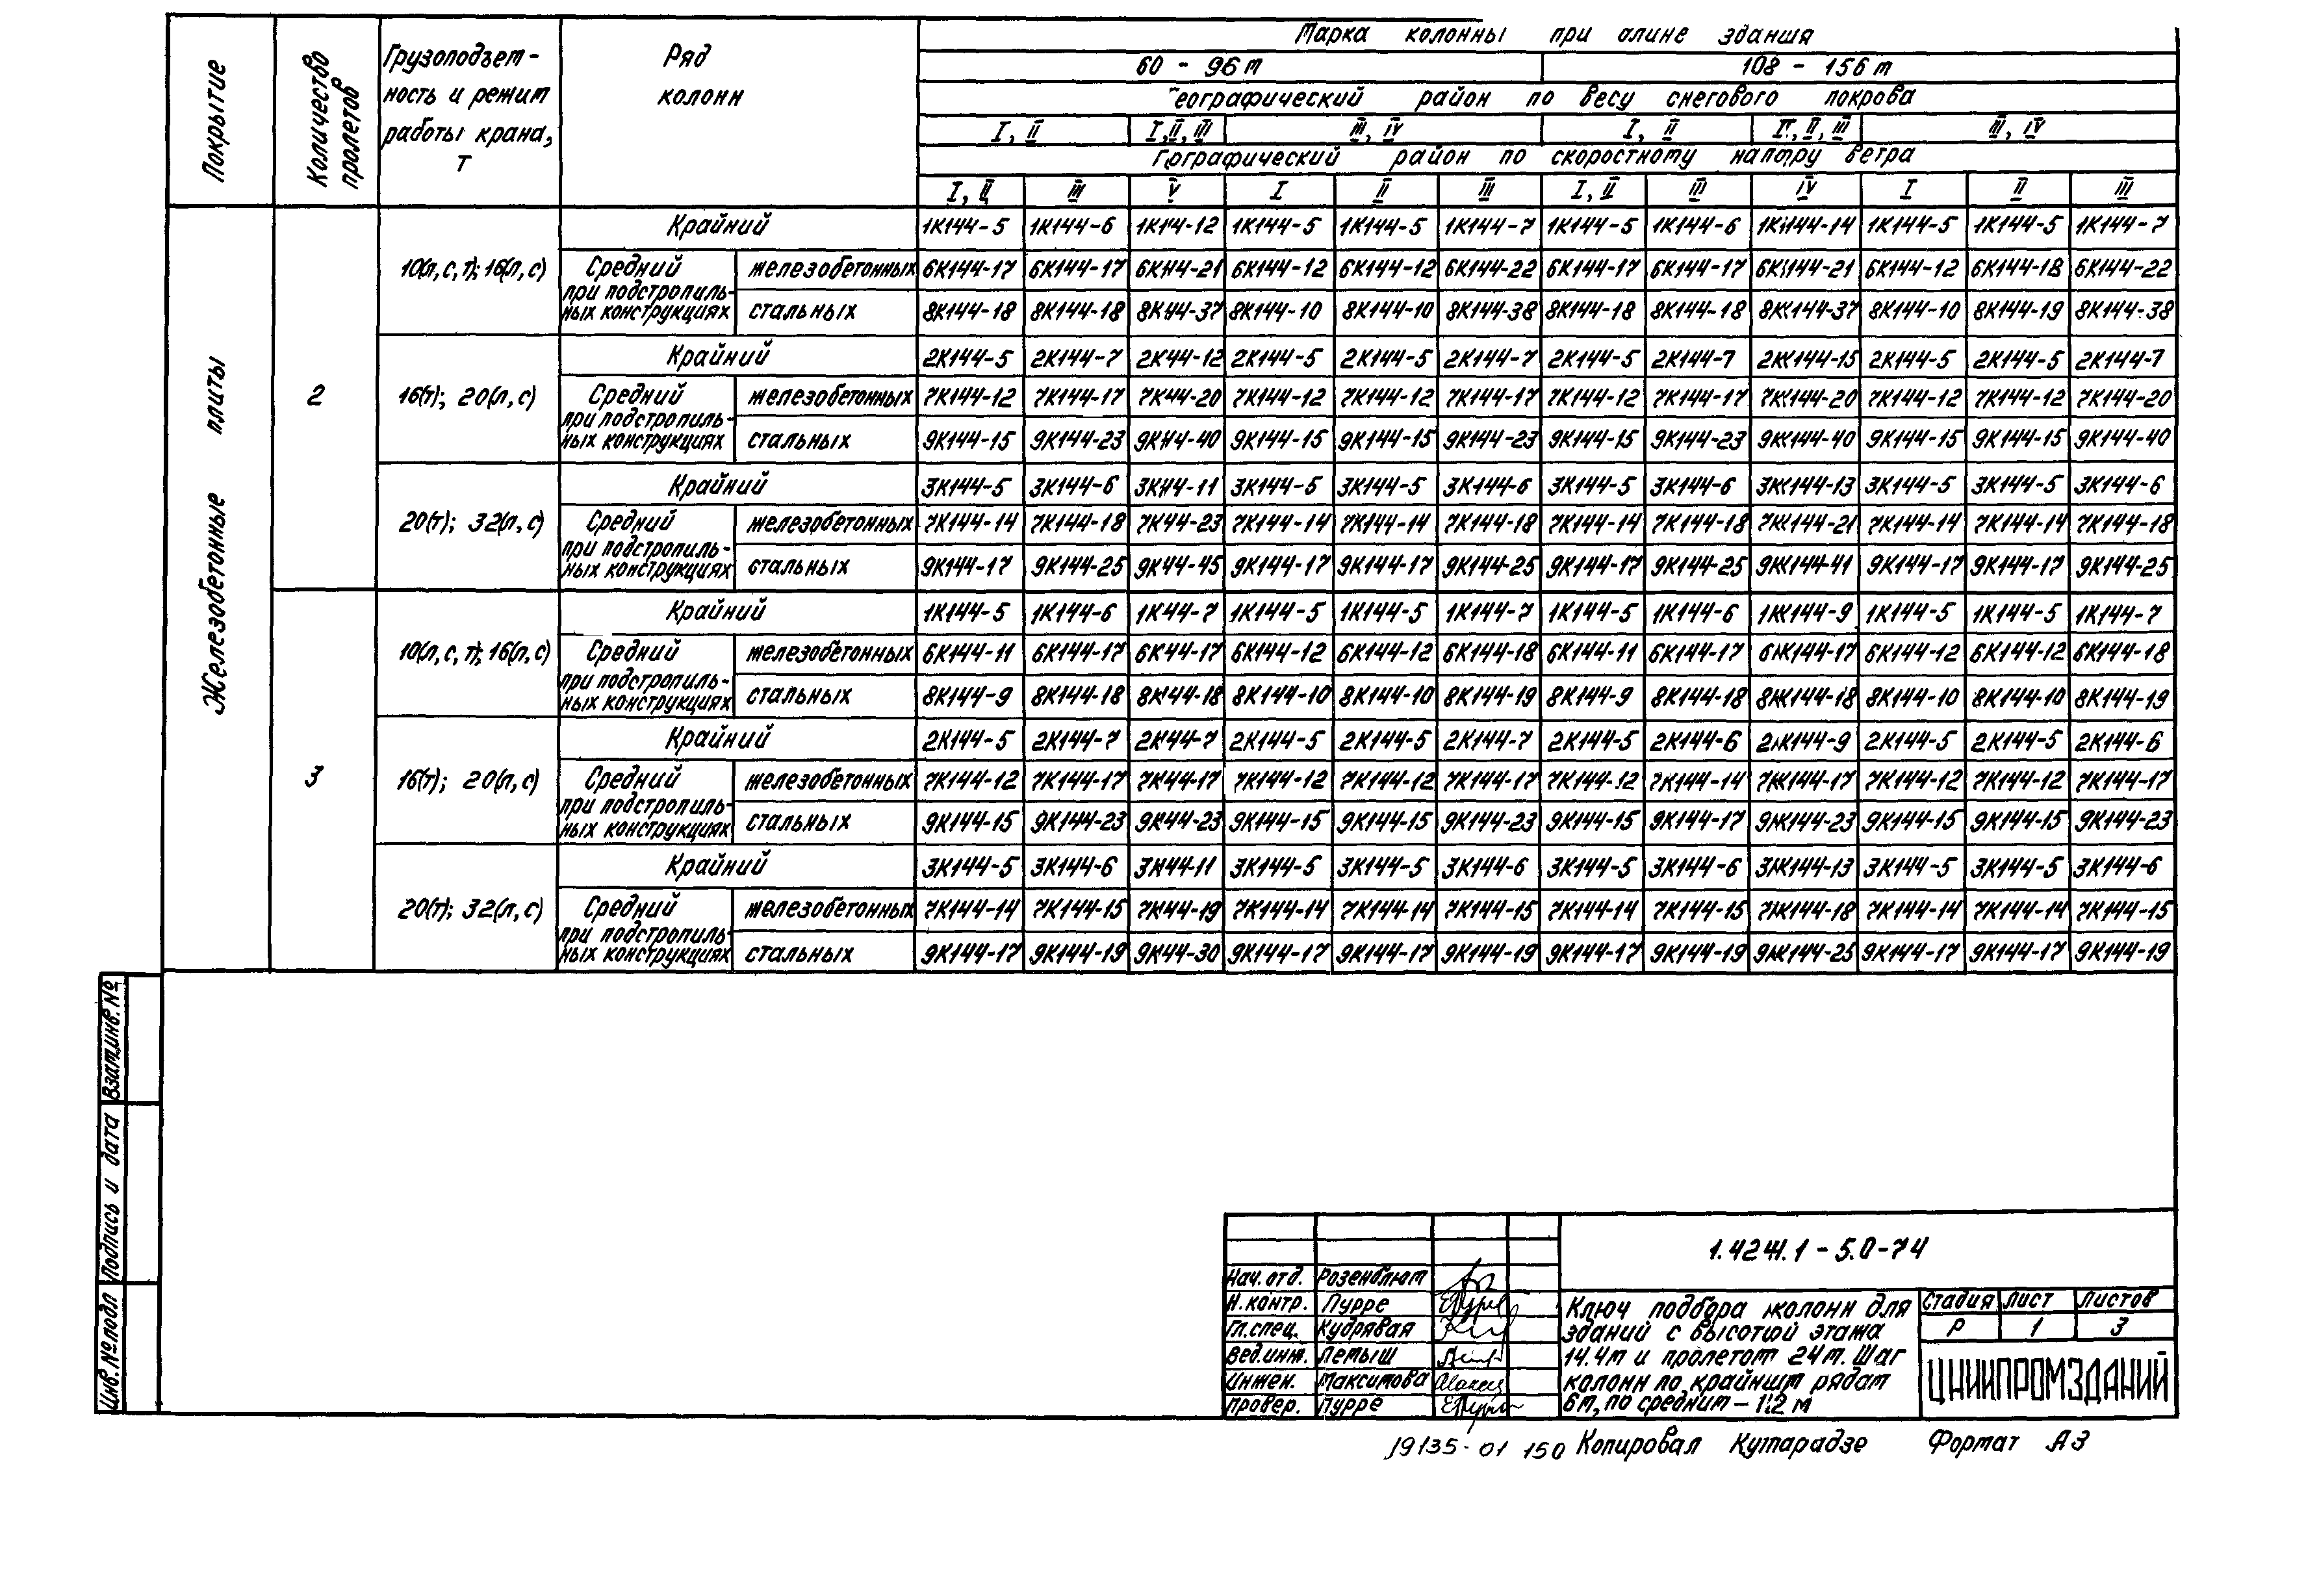 Марка колонны при длине здания
Покрытие
Количество пролетов
Грузоподъем-
ность и режим
работы крана,
т
Ряд
колонн
60 - 96 м 108 - 156 м
Географический район по весу снегового покрова
I, II I, II, III III, IV I, II I, II, III III, IV
Географический район по скоростному напору ветра
I, II III IV I II III I, II III IV I II III
Железобетонные плиты
2
10(л, с, т); 16(л, с)
Крайний 1К144-5 1К144-6 1К144-12 1К144-5 1К144-5 1К144-7 1К144-5 1К144-6 1К144-14 1К144-5 1К144-5 1К144-7
Средний
при подстропиль-
ных конструкциях
железобетонных 6К144-17 6К144-17 6К144-21 6К144-12 6К144-12 6К144-22 6К144-17 6К144-17 6К144-21 6К144-12 6К144-18 6К144-22
стальных 8К144-18 8К144-18 8К144-37 8К144-10 8К144-10 8К144-38 8К144-18 8К144-18 8К144-37 8К144-10 8К144-19 8К144-38
16(т); 20(л, с)
Крайний 2К144-5 2К144-7 2К144-12 2К144-5 2К144-5 2К144-7 2К144-5 2К144-7 2К144-15 2К144-5 2К144-5 2К144-7
Средний
при подстропиль-
ных конструкциях
железобетонных 7К144-12 7К144-17 7К144-20 7К144-12 7К144-12 7К144-17 7К144-12 7К144-17 7К144-20 7К144-12 7К144-12 7К144-20
стальных 9К144-15 9К144-23 9К144-40 9К144-15 9К144-15 9К144-23 9К144-15 9К144-23 9К144-40 9К144-15 9К144-15 9К144-40
20(т); 32(л, с)
Крайний 3К144-5 3К144-6 3К144-11 3К144-5 3К144-5 3К144-6 3К144-5 3К144-6 3К144-13 3К144-5 3К144-5 3К144-6
Средний
при подстропиль-
ных конструкциях
железобетонных 7К144-14 7К144-18 7К144-23 7К144-14 7К144-14 7К144-18 7К144-14 7К144-18 7К144-21 7К144-14 7К144-14 7К144-18
стальных 9К144-17 9К144-25 9К144-45 9К144-17 9К144-17 9К144-25 9К144-17 9К144-25 9К144-41 9К144-17 9К144-17 9К144-25
3
10(л, с, т); 16(л, с)
Крайний 1К144-5 1К144-6 1К144-7 1К144-5 1К144-5 1К144-7 1К144-5 1К144-6 1К144-9 1К144-5 1К144-5 1К144-7
Средний
при подстропиль-
ных конструкциях
железобетонных 6К144-11 6К144-17 6К144-17 6К144-12 6К144-12 6К144-18 6К144-11 6К144-17 6К144-17 6К144-12 6К144-12 6К144-18
стальных 8К144-9 8К144-18 8К144-18 8К144-10 8К144-10 8К144-19 8К144-9 8К144-18 8К144-18 8К144-10 8К144-10 8К144-19
16(т); 20(л, с)
Крайний 2К144-5 2К144-7 2К144-7 2К144-5 2К144-5 2К144-7 2К144-5 2К144-6 2К144-9 2К144-5 2К144-5 2К144-6
Средний
при подстропиль-
ных конструкциях
железобетонных 7К144-12 7К144-17 7К144-17 7К144-12 7К144-12 7К144-17 7К144-12 7К144-14 7К144-17 7К144-12 7К144-12 7К144-17
стальных 9К144-15 9К144-23 9К144-23 9К144-15 9К144-15 9К144-23 9К144-15 9К144-17 9К144-23 9К144-15 9К144-15 9К144-23
20(т); 32(л, с)
Крайний 3К144-5 3К144-6 3К144-11 3К144-5 3К144-5 3К144-6 3К144-5 3К144-6 3К144-13 3К144-5 3К144-5 3К144-6
Средний
при подстропиль-
ных конструкциях
железобетонных 7К144-14 7К144-15 7К144-19 7К144-14 7К144-14 7К144-15 7К144-14 7К144-15 7К144-18 7К144-14 7К144-14 7К144-15
стальных 9К144-17 9К144-19 9К144-30 9К144-17 9К144-17 9К144-19 9К144-17 9К144-19 9К144-25 9К144-17 9К144-17 9К144-19
Взам.инв.№
Подпись и дата
Инв.№подл
1.424.1 - 5.0-74
Нач. отд. Розенблюм
Н.контр. Пурре
Гл.спец. Кудрявая
Вед.инж. Лемыш
Инжен. Максимова
Провер. Пурре
Ключ подбора колонн для
зданий с высотой этажа
14.4м и пролетом 24м. Шаг
колонн по крайним рядам
6м, по средним - 12 м
Стадия Лист Листов
Р 1 3
ЦНИИПРОМЗДАНИЙ
19135-01 150 Копировал Кутарадзе Формат А3